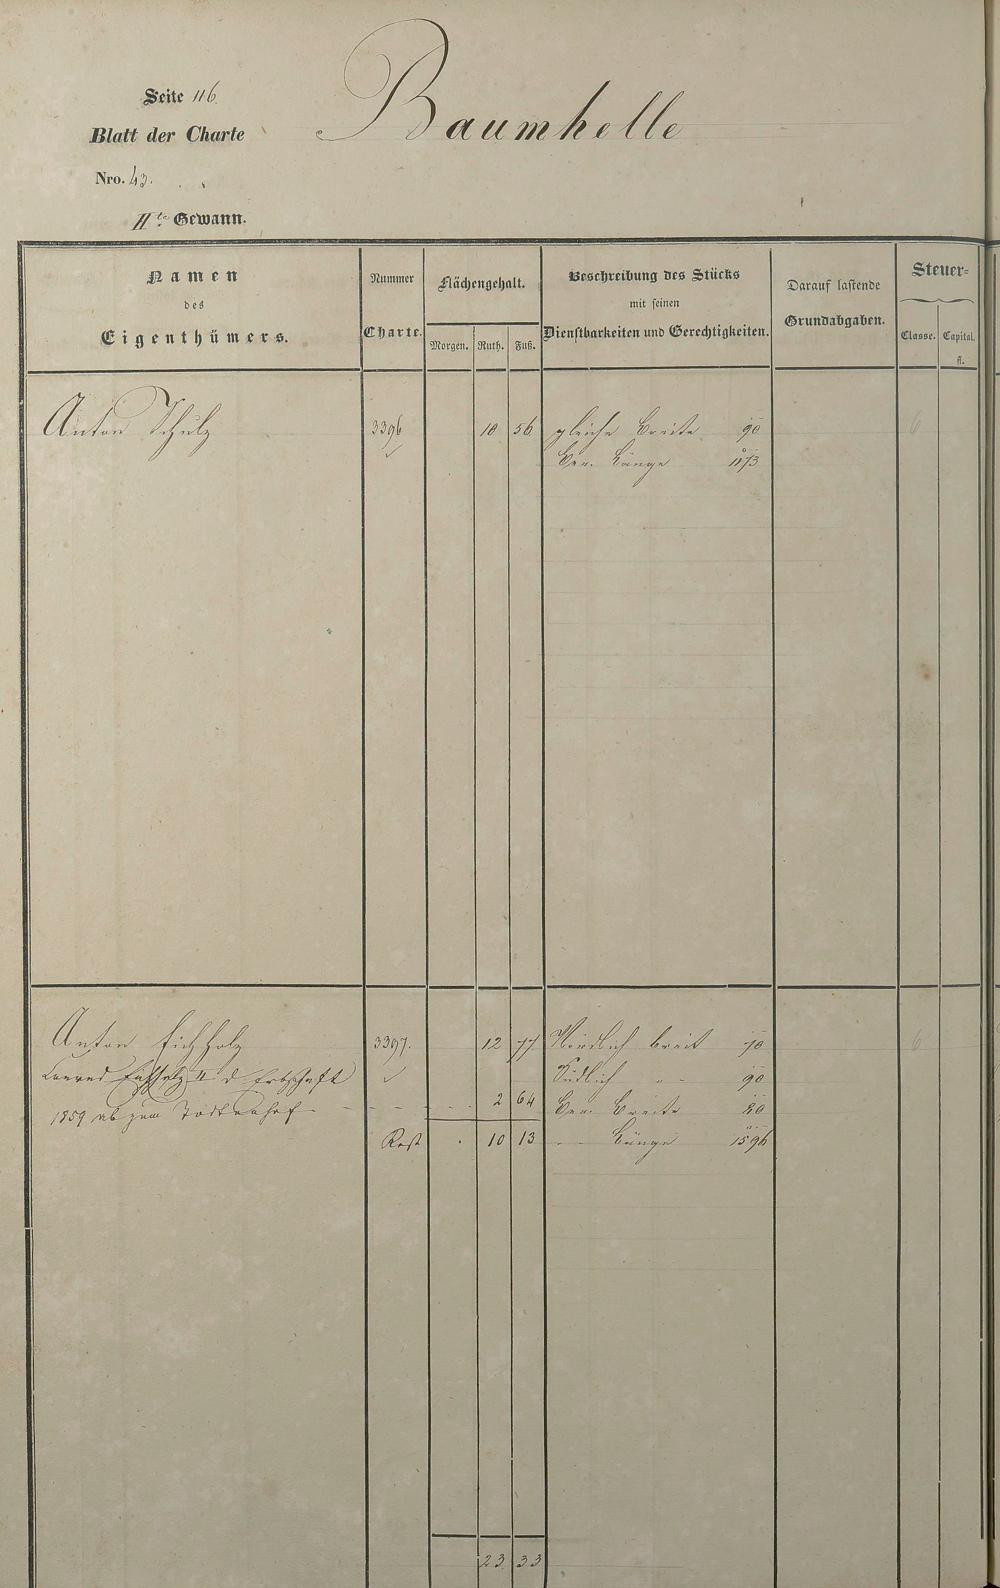 Seite 116.
Blatt der Charte
Nro. 43.
IIte Gewann.
Baumhelle
Namen
des
Eigenthümers.
Nummer
Charte.
Flächengehalt.
Morgen. Ruth. Fuß.
Beschreibung des Stücks
mit seinen
Dienstbarkeiten und Gerechtigkeiten.
Darauf lastende
Grundabgaben.
Steuer-
Classe. Capital.
fl.
Anton Schulz 3396 10 56 gleiche Breite 90 6
Ger. Länge 1173
Anton Eichholz 3397. 12 77 Nördlich breit 70 6
Conrad Eichholz II d Erbschaft Südlich " 90
1859 ab zum Todtenhof - - - - 2 64 Ger. Breite 80
Rest . 10 13 " Länge 1596
23 33